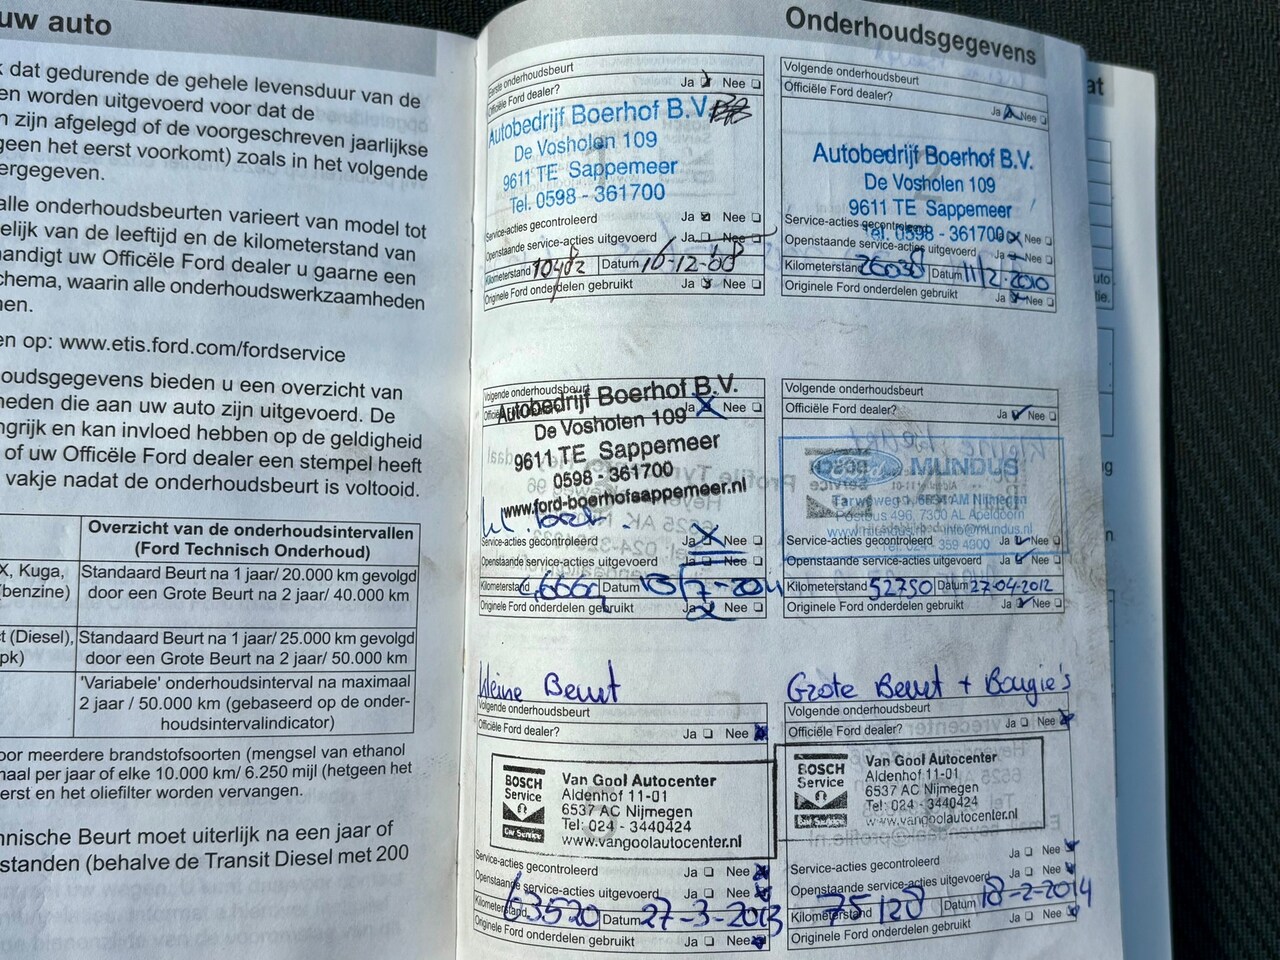 uw auto
dat gedurende de gehele levensduur van de
en worden uitgevoerd voor dat de
n zijn afgelegd of de voorgeschreven jaarlijkse
geen het eerst voorkomt) zoals in het volgende
ergegeven.
alle onderhoudsbeurten varieert van model tot
elijk van de leeftijd en de kilometerstand van
handigt uw Officële Ford dealer u gaarne een
chema, waarin alle onderhoudswerkzaamheden
nen.
en op: www.etis.ford.com/fordservice
oudsgegevens bieden u een overzicht van
heden die aan uw auto zijn uitgevoerd. De
ngrijk en kan invloed hebben op de geldigheid
of uw Officële Ford dealer een stempel heeft
vakje nadat de onderhoudsbeurt is voltooid.
Overzicht van de onderhoudsintervallen
(Ford Technisch Onderhoud)
X, Kuga,
(benzine)
Standaard Beurt na 1 jaar/ 20.000 km gevolgd
door een Grote Beurt na 2 jaar/ 40.000 km
t (Diesel),
pk)
Standaard Beurt na 1 jaar/ 25.000 km gevolgd
door een Grote Beurt na 2 jaar/ 50.000 km
'Variabele' onderhoudsinterval na maximaal
2 jaar / 50.000 km (gebaseerd op de onder-
houdsintervalindicator)
oor meerdere brandstofsoorten (mengsel van ethanol
naal per jaar of elke 10.000 km/ 6.250 mijl (hetgeen het
erst en het oliefilter worden vervangen.
hnische Beurt moet uiterlijk na een jaar of
standen (behalve de Transit Diesel met 200
Onderhoudsgegevens
Eerste onderhoudsbeurt
Officiële Ford dealer? Ja Nee
Autobedrijf Boerhof B.V.
De Vosholen 109
9611 TE Sappemeer
Tel. 0598 - 361700
Service-acties gecontroleerd Ja Nee
Openstaande service-acties uitgevoerd Ja Nee
Kilometerstand 10482 Datum 16-12-08
Originele Ford onderdelen gebruikt Ja Nee
Volgende onderhoudsbeurt
Officiële Ford dealer? Ja Nee
Autobedrijf Boerhof B.V.
De Vosholen 109
9611 TE Sappemeer
Tel. 0598 - 361700
Service-acties gecontroleerd Nee
Openstaande service-acties uitgevoerd Ja Nee
Kilometerstand 26038 Datum 11/2-2010
Originele Ford onderdelen gebruikt Ja Nee
Volgende onderhoudsbeurt
Autobedrijf Boerhof B.V. Ja Nee
De Vosholen 109
9611 TE Sappemeer
0598 - 361700
www.ford-boerhofsappemeer.nl
Service-acties gecontroleerd Ja Nee
Openstaande service-acties uitgevoerd Ja Nee
Kilometerstand Datum
Originele Ford onderdelen gebruikt Ja Nee
Volgende onderhoudsbeurt
Officiële Ford dealer? Ja Nee
Ford MUNDUS
Tarweweg 6534 AM Nijmegen
Postbus 496, 7300 AL Apeldoorn
Tel. 024 - 359 4900
Service-acties gecontroleerd Ja Nee
Openstaande service-acties uitgevoerd Ja Nee
Kilometerstand 52750 Datum 27-04-2012
Originele Ford onderdelen gebruikt Ja Nee
Kleine Beurt
Volgende onderhoudsbeurt
Officiële Ford dealer? Ja Nee
BOSCH
Service
Car Service
Van Gool Autocenter
Aldenhof 11-01
6537 AC Nijmegen
Tel: 024 - 3440424
www.vangoolautocenter.nl
Service-acties gecontroleerd Ja Nee
Openstaande service-acties uitgevoerd Ja Nee
Kilometerstand 63520 Datum 27-3-2013
Originele Ford onderdelen gebruikt Ja Nee
Grote Beurt + Bougie's
Volgende onderhoudsbeurt
Officiële Ford dealer? Ja Nee
BOSCH
Service
Car Service
Van Gool Autocenter
Aldenhof 11-01
6537 AC Nijmegen
Tel: 024 - 3440424
www.vangoolautocenter.nl
Service-acties gecontroleerd Ja Nee
Openstaande service-acties uitgevoerd Ja Nee
Kilometerstand 75128 Datum 18-2-2014
Originele Ford onderdelen gebruikt Ja Nee